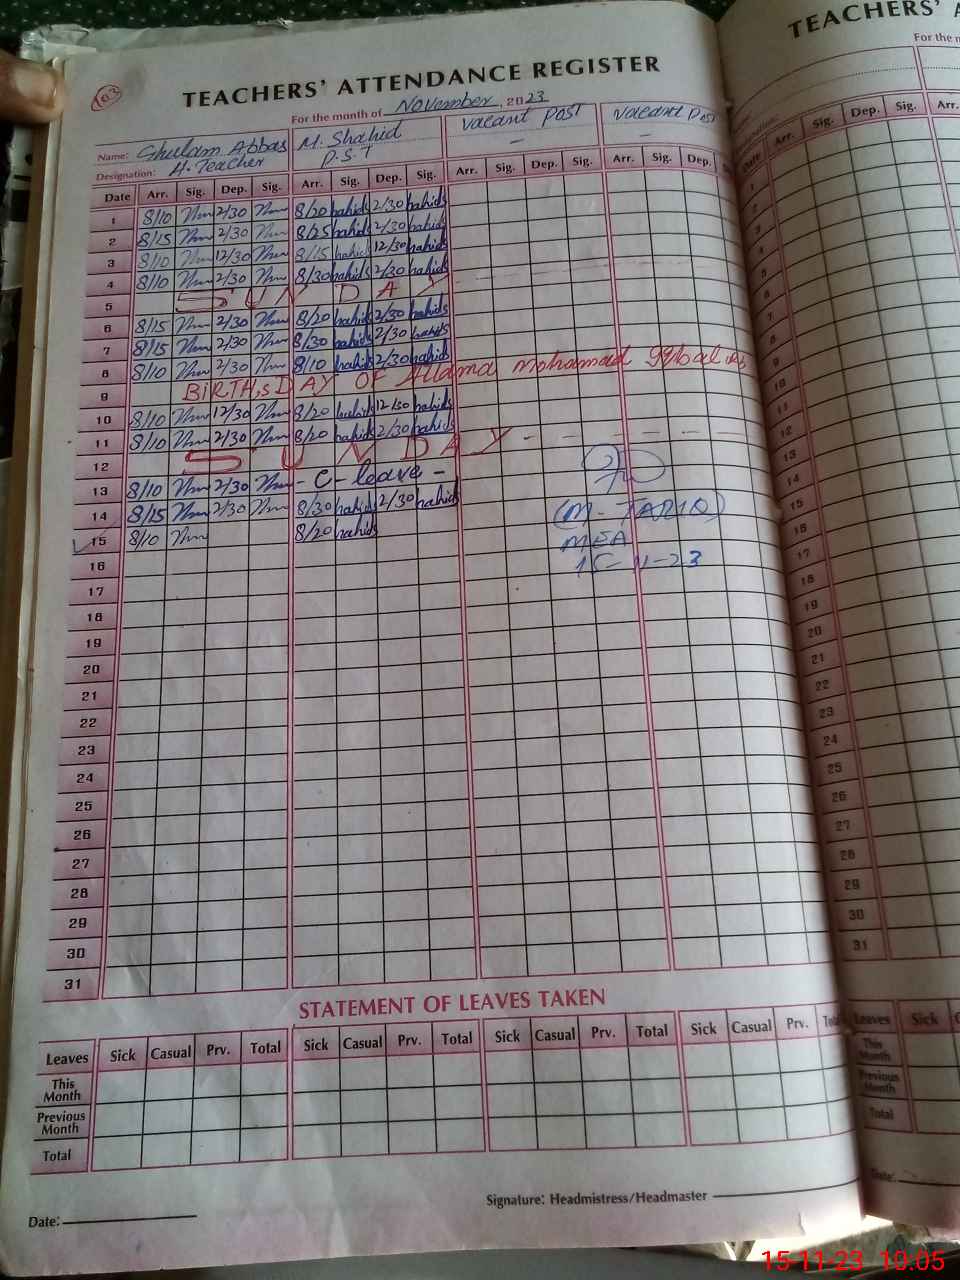 103
TEACHERS' ATTENDANCE REGISTER
For the month of November, 2023
Name: Ghulam Abbas M. Shahid Vacant Post Vacant Post
Designation: H. Teacher P.S.T - -
Date Arr. Sig. Dep. Sig. Arr. Sig. Dep. Sig. Arr. Sig. Dep. Sig. Arr. Sig. Dep.
1 8/10 2/30 8/20 hahids 2/30 hahids
2 8/15 2/30 8/25 hahids 2/30 hahids
3 8/10 12/30 8/15 hahids 12/30 hahids
4 8/10 2/30 8/30 hahids 2/30 hahids
5 SUNDAY
6 8/15 2/30 8/20 hahids 2/30 hahids
7 8/15 2/30 8/30 hahids 2/30 hahids
8 8/10 2/30 8/10 hahids 2/30 hahids
9 BIRTH,S DAY OF Allama Mohammad Iqbal
10 8/10 12/30 8/20 hahids 12/30 hahids
11 8/10 2/30 8/20 hahids 2/30 hahids
12 SUNDAY
13 8/10 2/30 - C - leave -
14 8/15 2/30 8/30 hahids 2/30 hahids
15 8/10 8/20 hahids
(M. TARIQ)
MEA
15-11-23
16
17
18
19
20
21
22
23
24
25
26
27
28
29
30
31
STATEMENT OF LEAVES TAKEN
Leaves Sick Casual Prv. Total Sick Casual Prv. Total Sick Casual Prv. Total Sick Casual Prv.
This Month
Previous Month
Total
Signature: Headmistress/Headmaster
Date:
TEACHERS'
For the
Date Arr. Sig. Dep. Sig. Arr.
1
2
3
4
5
6
7
8
9
10
11
12
13
14
15
16
17
18
19
20
21
22
23
24
25
26
27
28
29
30
31
Leaves Sick
This Month
Previous Month
Total
Date:
15-11-23 10:05